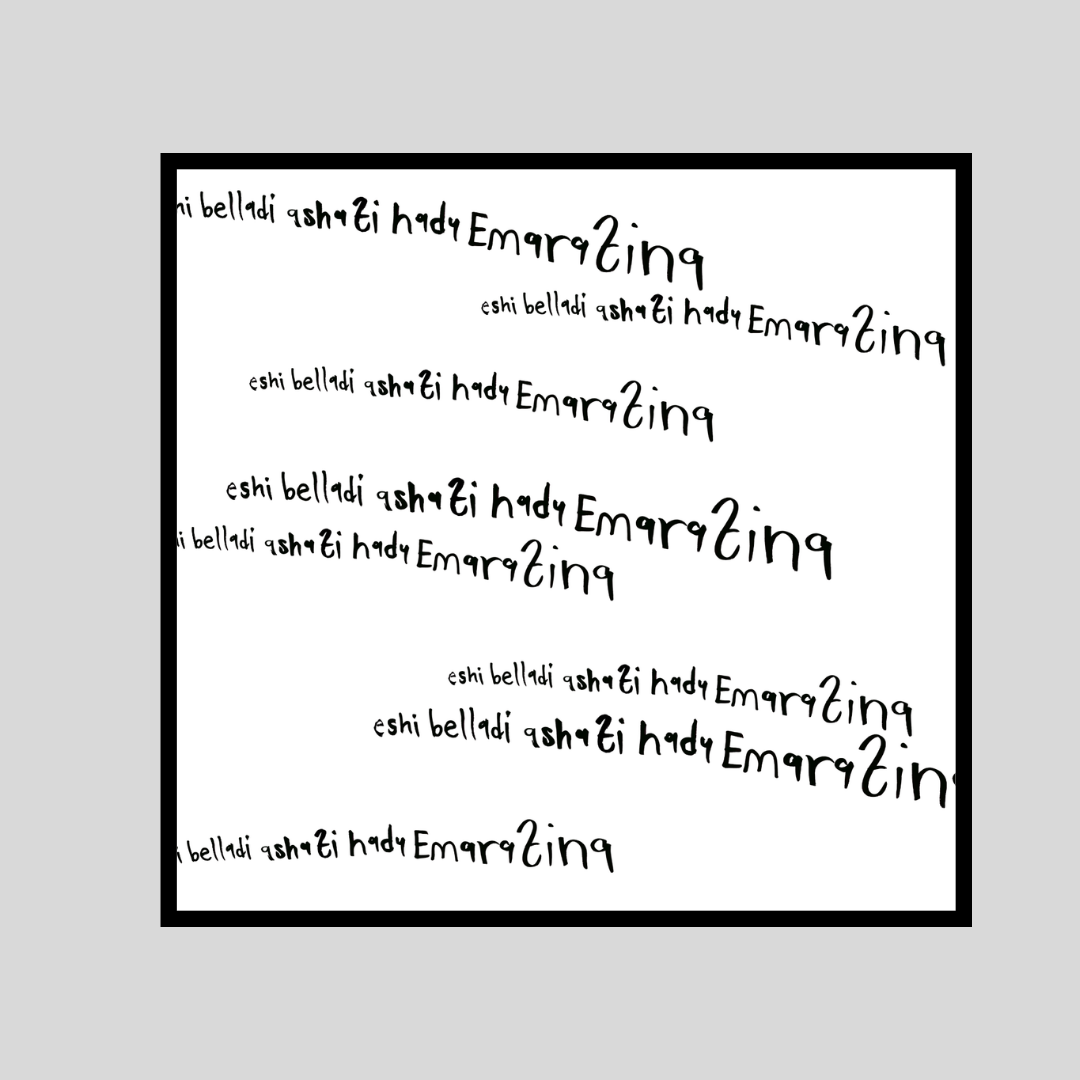 belladi ashati hady Emaratina
eshi belladi ashati hady Emaratina
eshi belladi ashati hady Emaratina
eshi belladi ashati hady Emaratina
belladi ashati hady Emaratina
eshi belladi ashati hady Emaratina
eshi belladi ashati hady Emaratin
belladi ashati hady Emaratina